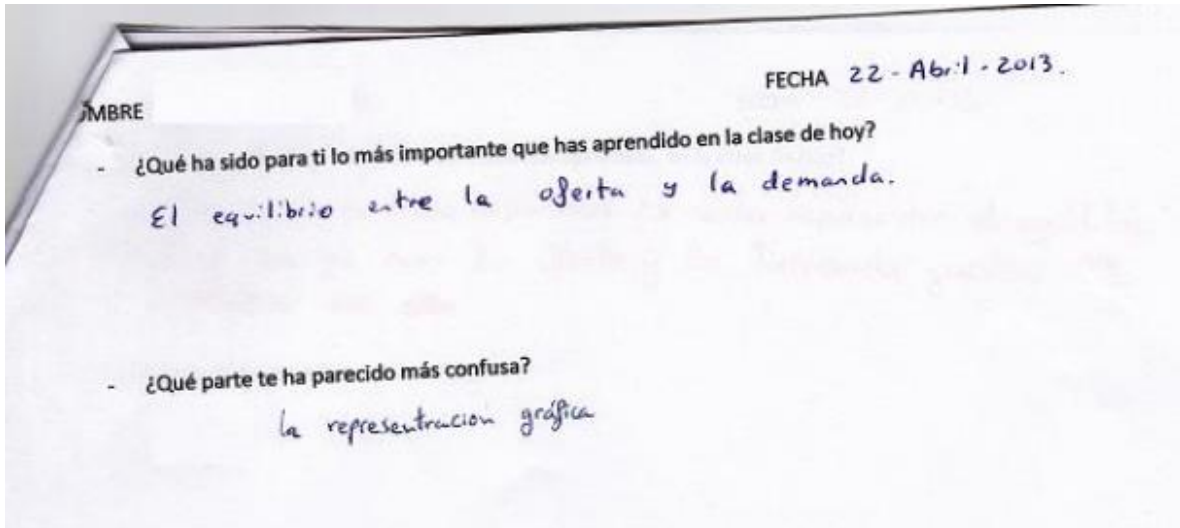 FECHA 22 - Abril - 2013.
OMBRE
- ¿Qué ha sido para ti lo más importante que has aprendido en la clase de hoy?
El equilibrio entre la oferta y la demanda.
- ¿Qué parte te ha parecido más confusa?
la representracion gráfica